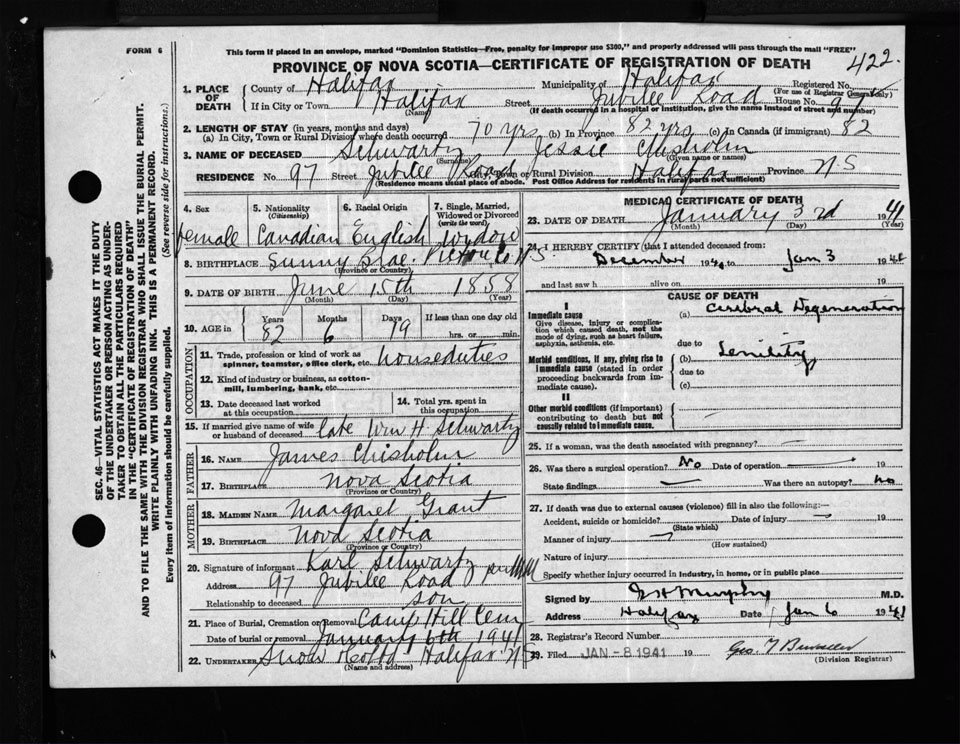 FORM 6
This form if placed in an envelope, marked "Dominion Statistics—Free, penalty for improper use $300," and properly addressed will pass through the mail "FREE"
PROVINCE OF NOVA SCOTIA—CERTIFICATE OF REGISTRATION OF DEATH
422.
1. PLACE OF DEATH
County of Halifax Municipality of Halifax Registered No.
(For use of Registrar General only)
If in City or Town Halifax Street Jubilee Road House No. 97
(Name) (If death occurred in a hospital or institution, give the name instead of street and number)
2. LENGTH OF STAY (in years, months and days)
(a) In City, Town or Rural Division where death occurred 70 yrs (b) In Province 82 yrs (c) In Canada (if immigrant) 82
3. NAME OF DECEASED Schwartz Jessie Chisholm
(Surname) (Given name or names)
RESIDENCE No. 97 Street Jubilee Road City, Town or Rural Division Halifax Province N S
(Residence means usual place of abode. Post Office Address for residents in rural parts not sufficient)
4. Sex female
5. Nationality (Citizenship) Canadian
6. Racial Origin English
7. Single, Married, Widowed or Divorced (write the word) widow
8. BIRTHPLACE Sunny Brae. Pictou Co N.S.
(Province or Country)
9. DATE OF BIRTH June 15th 1858
(Month) (Day) (Year)
10. AGE in Years 82 Months 6 Days 19 If less than one day old
hrs. or min.
OCCUPATION
11. Trade, profession or kind of work as spinner, teamster, office clerk, etc. houseduties
12. Kind of industry or business, as cotton-mill, lumbering, bank, etc.
13. Date deceased last worked at this occupation
14. Total yrs. spent in this occupation
15. If married give name of wife or husband of deceased late Wm H. Schwartz
FATHER
16. NAME James Chisholm
17. BIRTHPLACE Nova Scotia
(Province or Country)
MOTHER
18. MAIDEN NAME Margaret Grant
19. BIRTHPLACE Nova Scotia
(Province or Country)
20. Signature of informant Karl Schwartz
Address 97 Jubilee Road
Relationship to deceased son
21. Place of Burial, Cremation or Removal Camp Hill Cem
Date of burial or removal January 6th 1941
22. UNDERTAKER Snow Halifax N S
(Name and address)
MEDICAL CERTIFICATE OF DEATH
23. DATE OF DEATH January 3rd 1941
(Month) (Day) (Year)
24. I HEREBY CERTIFY (that I attended deceased from:
December 1940 to Jan 3 1941
and last saw h alive on 19
CAUSE OF DEATH
I
Immediate cause
Give disease, injury or complication which caused death, not the mode of dying, such as heart failure, asphyxia, asthenia, etc.
(a) Cerebral Degeneration
due to
Morbid conditions, if any, giving rise to immediate cause (stated in order proceeding backwards from immediate cause).
(b) Senility
due to
(c)
II
Other morbid conditions (if important) contributing to death but not causally related to immediate cause.
25. If a woman, was the death associated with pregnancy?
26. Was there a surgical operation? No Date of operation 19
State findings Was there an autopsy? no
27. If death was due to external causes (violence) fill in also the following:—
Accident, suicide or homicide? Date of injury 19
(State which)
Manner of injury
(How sustained)
Nature of injury
Specify whether injury occurred in industry, in home, or in public place
Signed by Murphy M.D.
Address Halifax Date Jan 6 1941
28. Registrar's Record Number
29. Filed JAN -8 1941 19 Geo.
(Division Registrar)
SEC. 46—VITAL STATISTICS ACT MAKES IT THE DUTY
OF THE UNDERTAKER OR PERSON ACTING AS UNDER-
TAKER TO OBTAIN ALL THE PARTICULARS REQUIRED
IN THE "CERTIFICATE OF REGISTRATION OF DEATH"
AND TO FILE THE SAME WITH THE DIVISION REGISTRAR WHO SHALL ISSUE THE BURIAL PERMIT.
WRITE PLAINLY WITH UNFADING INK. THIS IS A PERMANENT RECORD.
Every item of information should be carefully supplied. (See reverse side for instructions.)